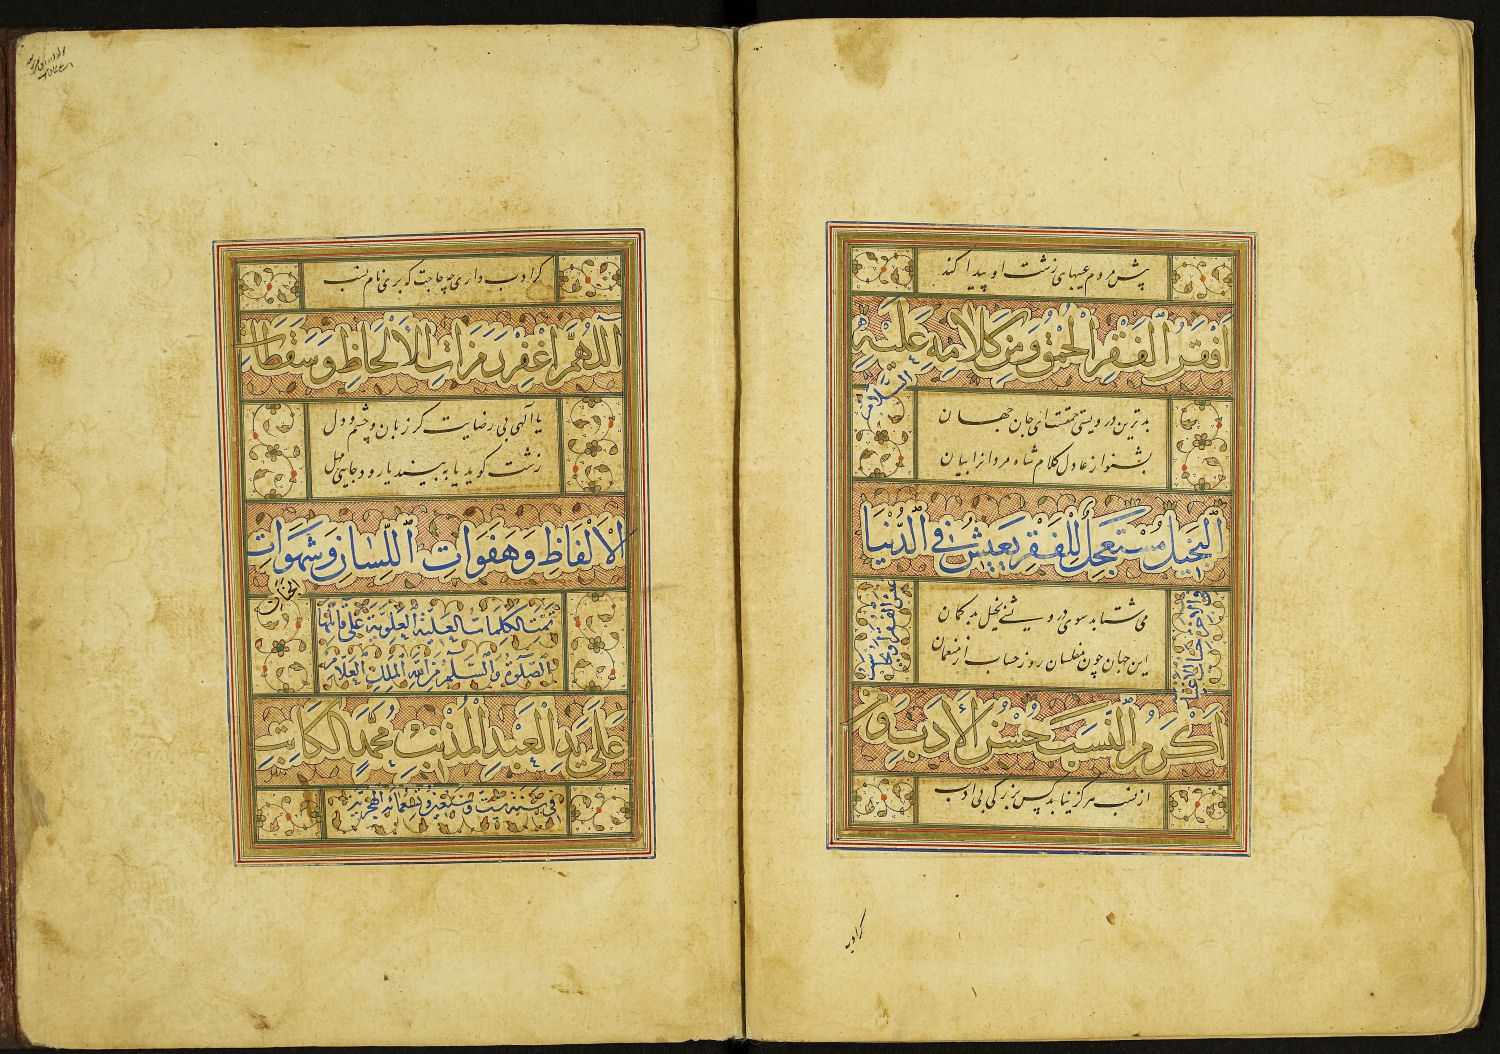 پیش مردم عیبهای زشت او پیدا کند
اَفْقَرُ الْفَقْرِ الْحُمْقُ وَمِنْ كَلَامِهِ عَلَيْهِ
السلام
بدترین درویشی حمقست ای جان جهان
بشنو از عادل کلام شاه مردانرا بیان
اَلْبَخِيلُ مُسْتَعْجِلُ لِلْفَقْرِ يَعِيشُ فِي الدُّنْيَا
عيش الفقراء ويحاسب
في الآخرة حساب الاغنياء
می شتابد سوی درویشی بخیل بد کمان
این جهان چون مفلسان روز حساب از منعمان
اَكْرَمُ النَّسَبِ حُسْنُ الْأَدَبِ وَ
از نسب هرکز نیابد کس بزرکی بی ادب
کرادب
کر ادب داری چه حاجت کو بری نام نسب
اَللّٰهُمَّ اغْفِرْ رَمَزَاتِ الْأَلْحَاظِ وَسَقَطَاتِ
یا الهی بی رضایت کر زبان و چشم و دل
زشت کوید یا به بیند یا رود جایی مهل
الْاَلْفَاظِ وَهَفَوَاتِ اللِّسَانِ وَشَهَوَاتِ
الجنان
تمت الكلمات العلية العلوية على قائلها
الصلوة والسلم من الله الملك العلام
عَلَى يَدِ الْعَبْدِ الْمُذْنِبِ مُحَمَّدٍ الْكَاتِبِ
في سنة ست وسبعين وتسعمائة الهجرية